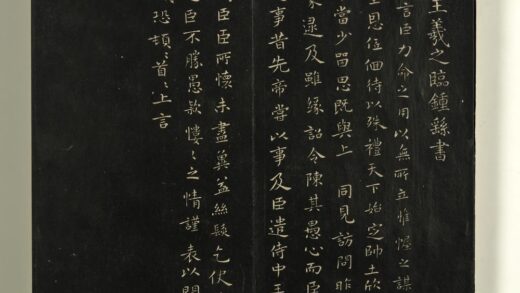 王羲之臨鍾繇書
言臣力命之用以無所立惟幄之謀
恩低佪待以殊禮天下始定帥土欣
當少留思既與上 同見訪問昨
逮及雖緣詔令陳其愚心而臣
事昔先帝嘗以事及臣遣侍中王
臣臣所懷未盡冀益絲髮乞伏
臣不勝愚款慺〻之情謹表以聞
恐頓首〻上言